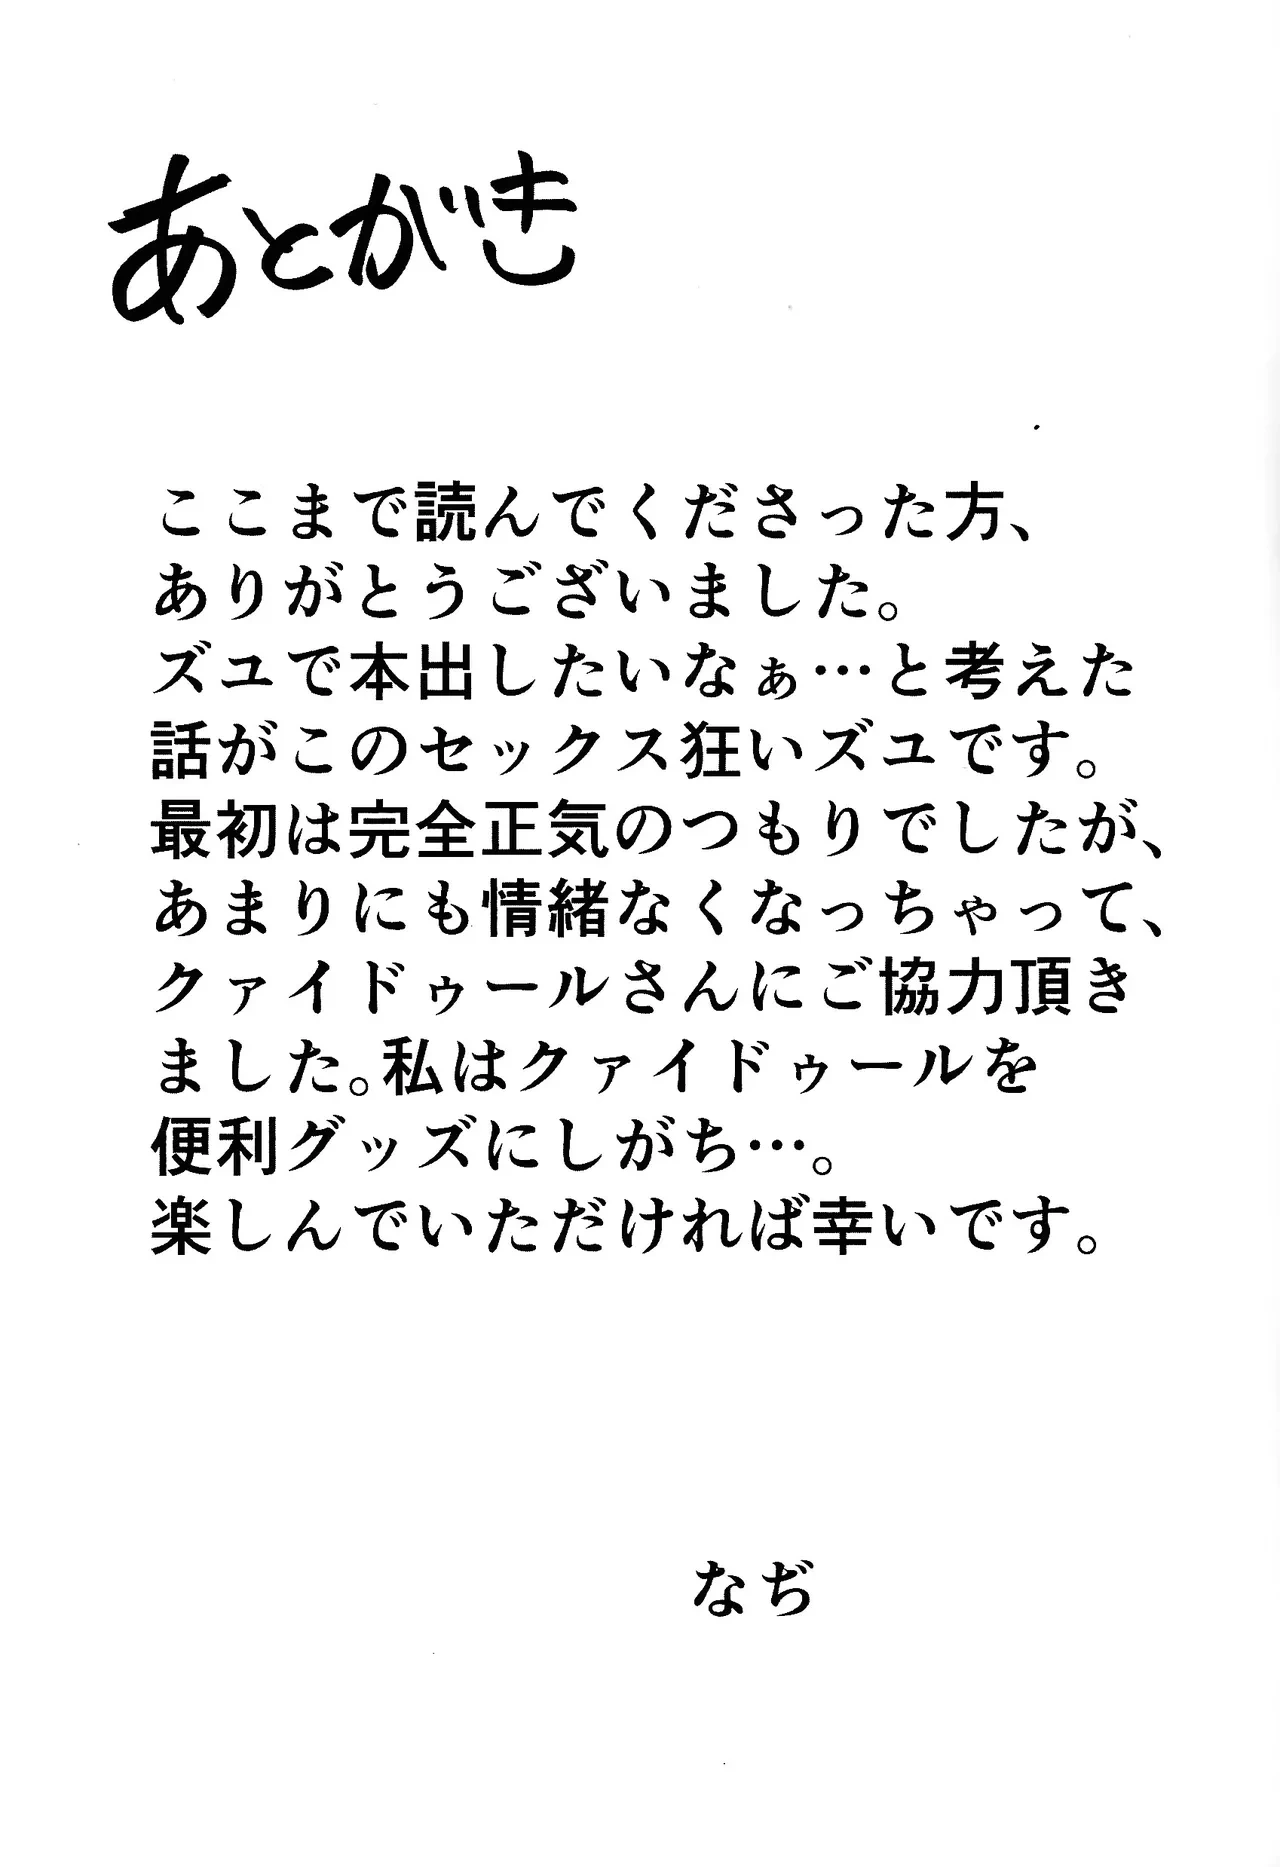 あとがき
ここまで読んでくださった方、
ありがとうございました。
ズユで本出したいなぁ…と考えた
話がこのセックス狂いズユです。
最初は完全正気のつもりでしたが、
あまりにも情緒なくなっちゃって、
クァイドゥールさんにご協力頂き
ました。私はクァイドゥールを
便利グッズにしがち…。
楽しんでいただければ幸いです。
なぢ